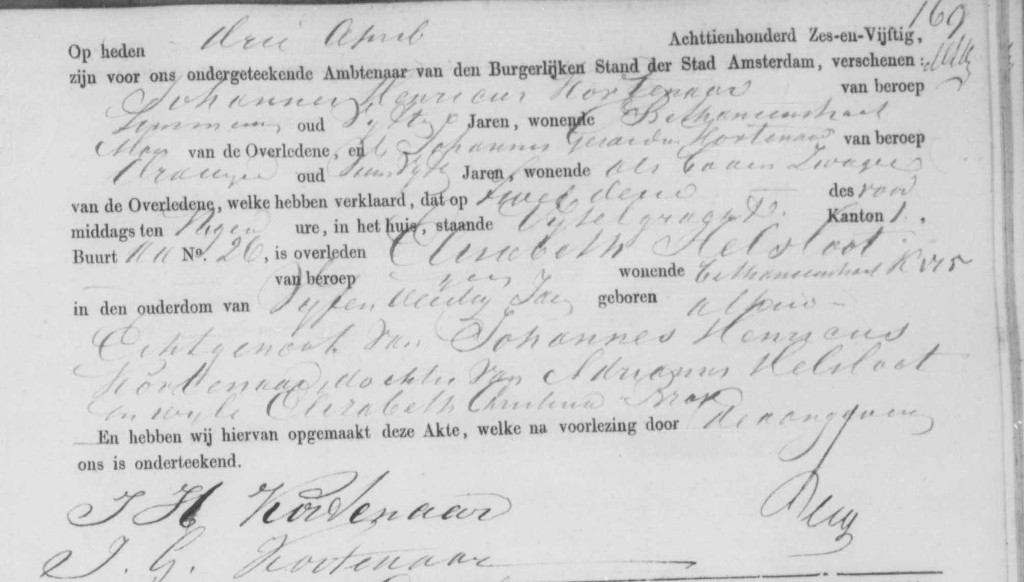 169
Op heden drie April Achttienhonderd Zes-en-Vijftig,
zijn voor ons ondergeteekende Ambtenaar van den Burgerlijken Stand der Stad Amsterdam, verschenen:
Johannes Henricus Kortenaar van beroep
Timmerman oud Vyftig Jaren, wonende Bethanienstraat
Man van de Overledene, en Johannes Gerardus Kortenaar van beroep
oud Jaren, wonende als boven Zwager
van de Overledene, welke hebben verklaard, dat op twee dezer des voor
middags ten Negen ure, in het huis, staande Vyselgracht Kanton 1.
Buurt No. 26, is overleden Elisabeth Helsloot
van beroep geen wonende Bethanienstraat K 575
in den ouderdom van Vyfen Jaar geboren alhier
Echtgenoot van Johannes Henricus
Kortenaar, dochter van Adrianus Helsloot
en wyle Elizabeth Christina
En hebben wij hiervan opgemaakt deze Akte, welke na voorlezing door de aangevers
ons is onderteekend.
J H Kortenaar
J. G. Kortenaar